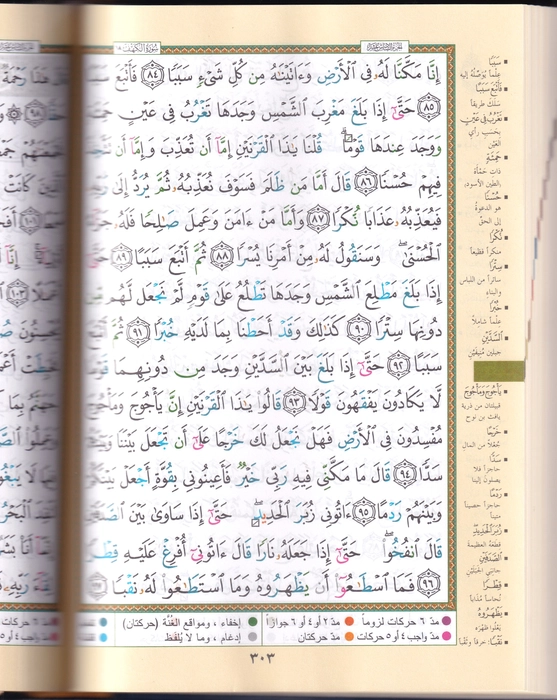 سُورَةُ الكَهْف ١٨
إِنَّا مَكَّنَّا لَهُۥ فِي ٱلْأَرْضِ وَءَاتَيْنَٰهُ مِن كُلِّ شَيْءٍ سَبَبًا ﴿٨٤﴾ فَأَتْبَعَ سَبَبًا
﴿٨٥﴾ حَتَّىٰٓ إِذَا بَلَغَ مَغْرِبَ ٱلشَّمْسِ وَجَدَهَا تَغْرُبُ فِي عَيْنٍ حَمِئَةٍ
وَوَجَدَ عِندَهَا قَوْمًاۗ قُلْنَا يَٰذَا ٱلْقَرْنَيْنِ إِمَّآ أَن تُعَذِّبَ وَإِمَّآ أَن تَتَّخِذَ
فِيهِمْ حُسْنًا ﴿٨٦﴾ قَالَ أَمَّا مَن ظَلَمَ فَسَوْفَ نُعَذِّبُهُۥ ثُمَّ يُرَدُّ إِلَىٰ رَبِّهِۦ
فَيُعَذِّبُهُۥ عَذَابًا نُّكْرًا ﴿٨٧﴾ وَأَمَّا مَنْ ءَامَنَ وَعَمِلَ صَٰلِحًا فَلَهُۥ جَزَآءً
ٱلْحُسْنَىٰۖ وَسَنَقُولُ لَهُۥ مِنْ أَمْرِنَا يُسْرًا ﴿٨٨﴾ ثُمَّ أَتْبَعَ سَبَبًا ﴿٨٩﴾ حَتَّىٰٓ
إِذَا بَلَغَ مَطْلِعَ ٱلشَّمْسِ وَجَدَهَا تَطْلُعُ عَلَىٰ قَوْمٍ لَّمْ نَجْعَل لَّهُم مِّن
دُونِهَا سِتْرًا ﴿٩٠﴾ كَذَٰلِكَ وَقَدْ أَحَطْنَا بِمَا لَدَيْهِ خُبْرًا ﴿٩١﴾ ثُمَّ أَتْبَعَ
سَبَبًا ﴿٩٢﴾ حَتَّىٰٓ إِذَا بَلَغَ بَيْنَ ٱلسَّدَّيْنِ وَجَدَ مِن دُونِهِمَا قَوْمًا
لَّا يَكَادُونَ يَفْقَهُونَ قَوْلًا ﴿٩٣﴾ قَالُوا۟ يَٰذَا ٱلْقَرْنَيْنِ إِنَّ يَأْجُوجَ وَمَأْجُوجَ
مُفْسِدُونَ فِي ٱلْأَرْضِ فَهَلْ نَجْعَلُ لَكَ خَرْجًا عَلَىٰٓ أَن تَجْعَلَ بَيْنَنَا وَبَيْنَهُمْ
سَدًّا ﴿٩٤﴾ قَالَ مَا مَكَّنِّي فِيهِ رَبِّي خَيْرٌ فَأَعِينُونِي بِقُوَّةٍ أَجْعَلْ بَيْنَكُمْ
وَبَيْنَهُمْ رَدْمًا ﴿٩٥﴾ ءَاتُونِي زُبَرَ ٱلْحَدِيدِۖ حَتَّىٰٓ إِذَا سَاوَىٰ بَيْنَ ٱلصَّدَفَيْنِ
قَالَ ٱنفُخُوا۟ۖ حَتَّىٰٓ إِذَا جَعَلَهُۥ نَارًا قَالَ ءَاتُونِيٓ أُفْرِغْ عَلَيْهِ قِطْرًا
﴿٩٦﴾ فَمَا ٱسْطَٰعُوٓا۟ أَن يَظْهَرُوهُ وَمَا ٱسْتَطَٰعُوا۟ لَهُۥ نَقْبًا
سَبَبًا
علماً يوصّله إليه
فَأَتْبَعَ سَبَبًا
سلك طريقاً
تَغْرُبُ فِي عَيْنٍ
بحسب رأي
العين
حَمِئَةٍ
ذات حمأة
(الطين الأسود)
حُسْنًا
هو الدعوة
إلى الحق
نُكْرًا
منكراً فظيعاً
سِتْرًا
ساتراً من اللباس
والبناء
خُبْرًا
علماً شاملاً
السَّدَّيْنِ
جبلين منيفين
يَأْجُوجَ وَمَأْجُوجَ
قبيلتان من ذرية
يافث بن نوح
خَرْجًا
جعلاً من المال
سَدًّا
حاجزاً فلا
يصلون إلينا
رَدْمًا
حاجزاً حصيناً
متيناً
زُبَرَ الْحَدِيدِ
قطعه العظيمة
الصَّدَفَيْنِ
جانبي الجبلين
قِطْرًا
نحاساً مذاباً
يَظْهَرُوهُ
يعلوا ظهره
نَقْبًا: خرقاً وثقباً
مدّ ٦ حركات لزوماً مدّ ٢ أو ٤ أو ٦ جوازاً إخفاء، ومواقع الغُنَّة (حركتان)
مدّ واجب ٤ أو ٥ حركات مدّ حركتان إدغام، وما لا يُلفَظ
٣٠٣